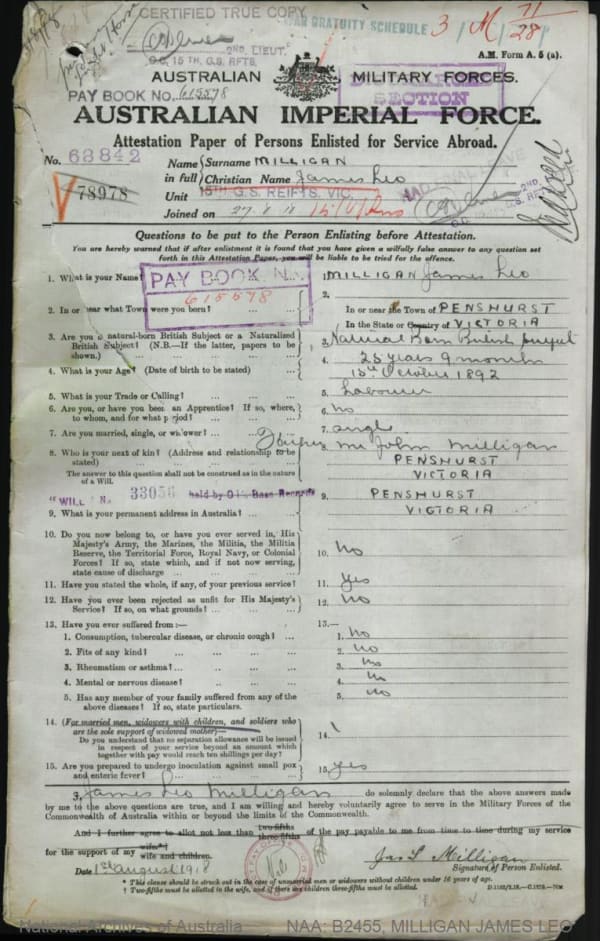 CERTIFIED TRUE COPY
WAR GRATUITY SCHEDULE 3 M 71/28
2ND. LIEUT.
O.C. 15TH. G.S. RFTS.
A.M. Form A. 5 (a).
AUSTRALIAN MILITARY FORCES.
PAY BOOK NO. 615578
SECTION
AUSTRALIAN IMPERIAL FORCE.
Attestation Paper of Persons Enlisted for Service Abroad.
No. 63842
Name in full { Surname MILLIGAN
Christian Name James Leo
V78978
Unit 15TH G.S. REIFTS, VIC.
Joined on
Questions to be put to the Person Enlisting before Attestation.
You are hereby warned that if after enlistment it is found that you have given a wilfully false answer to any question set
forth in this Attestation Paper, you will be liable to be tried for the offence.
1. What is your Name? 1. MILLIGAN James Leo
PAY BOOK No.
615578
2. In or near what Town were you born? 2. In or near the Town of PENSHURST
In the State or Country of VICTORIA
3. Are you a natural-born British Subject or a Naturalized
British Subject? (N.B.—If the latter, papers to be
shown.) 3. Natural Born British Subject
4. What is your Age? (Date of birth to be stated) 4. 25 years 9 months
15th October 1892
5. What is your Trade or Calling? 5. Labourer
6. Are you, or have you been an Apprentice? If so, where,
to whom, and for what period? 6. No
7. Are you married, single, or widower? 7. Single
8. Who is your next of kin? (Address and relationship to be
stated) 8. Father Mr John Milligan
PENSHURST
VICTORIA
The answer to this question shall not be construed as in the nature
of a Will.
"WILL" No. 33056 held by O/c Base Records
9. What is your permanent address in Australia? 9. PENSHURST
VICTORIA
10. Do you now belong to, or have you ever served in, His
Majesty's Army, the Marines, the Militia, the Militia
Reserve, the Territorial Force, Royal Navy, or Colonial
Forces? If so, state which, and if not now serving,
state cause of discharge 10. No
11. Have you stated the whole, if any, of your previous service? 11. Yes
12. Have you ever been rejected as unfit for His Majesty's
Service? If so, on what grounds? 12. No
13. Have you ever suffered from :— 13.—
1. Consumption, tubercular disease, or chronic cough? 1. No
2. Fits of any kind? 2. No
3. Rheumatism or asthma? 3. No
4. Mental or nervous disease? 4. No
5. Has any member of your family suffered from any of the
above diseases? If so, state particulars. 5. No
14. (For married men, widowers with children, and soldiers who
are the sole support of widowed mother)—
Do you understand that no separation allowance will be issued
in respect of your service beyond an amount which
together with pay would reach ten shillings per day? 14.
15. Are you prepared to undergo inoculation against small pox
and enteric fever? 15. Yes
I, James Leo Milligan do solemnly declare that the above answers made
by me to the above questions are true, and I am willing and hereby voluntarily agree to serve in the Military Forces of the
Commonwealth of Australia within or beyond the limits of the Commonwealth.
And I further agree to allot not less than two-fifths three-fifths of the pay payable to me from time to time during my service
for the support of my wife* † wife and children.
Date 1st August 1918 Jas L Milligan
Signature of Person Enlisted.
* This clause should be struck out in the case of unmarried men or widowers without children under 16 years of age.
† Two-fifths must be allotted to the wife, and if there are children three-fifths must be allotted.
National Archives of Australia NAA: B2455, MILLIGAN JAMES LEO